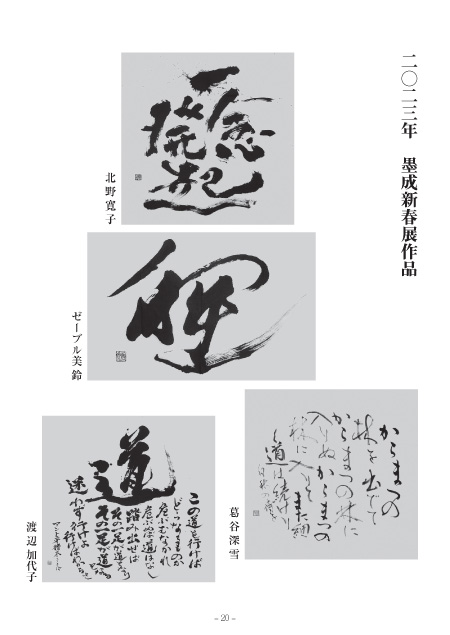 二〇二三年　墨成新春展作品
一念
發起
北野寛子
ゼーブル美鈴
からまつの
林を出でて
からまつの林に
入りぬからまつの
林に入りて
また細く
道は続けり
葛谷深雪
道
この道を行けば
どうなるものか
危ぶむなかれ
危ぶめば道はなし
踏み出せば
その一足が道となり
その一足が道
迷わず行けよ
行けばわかるさ
渡辺加代子
– 20 –